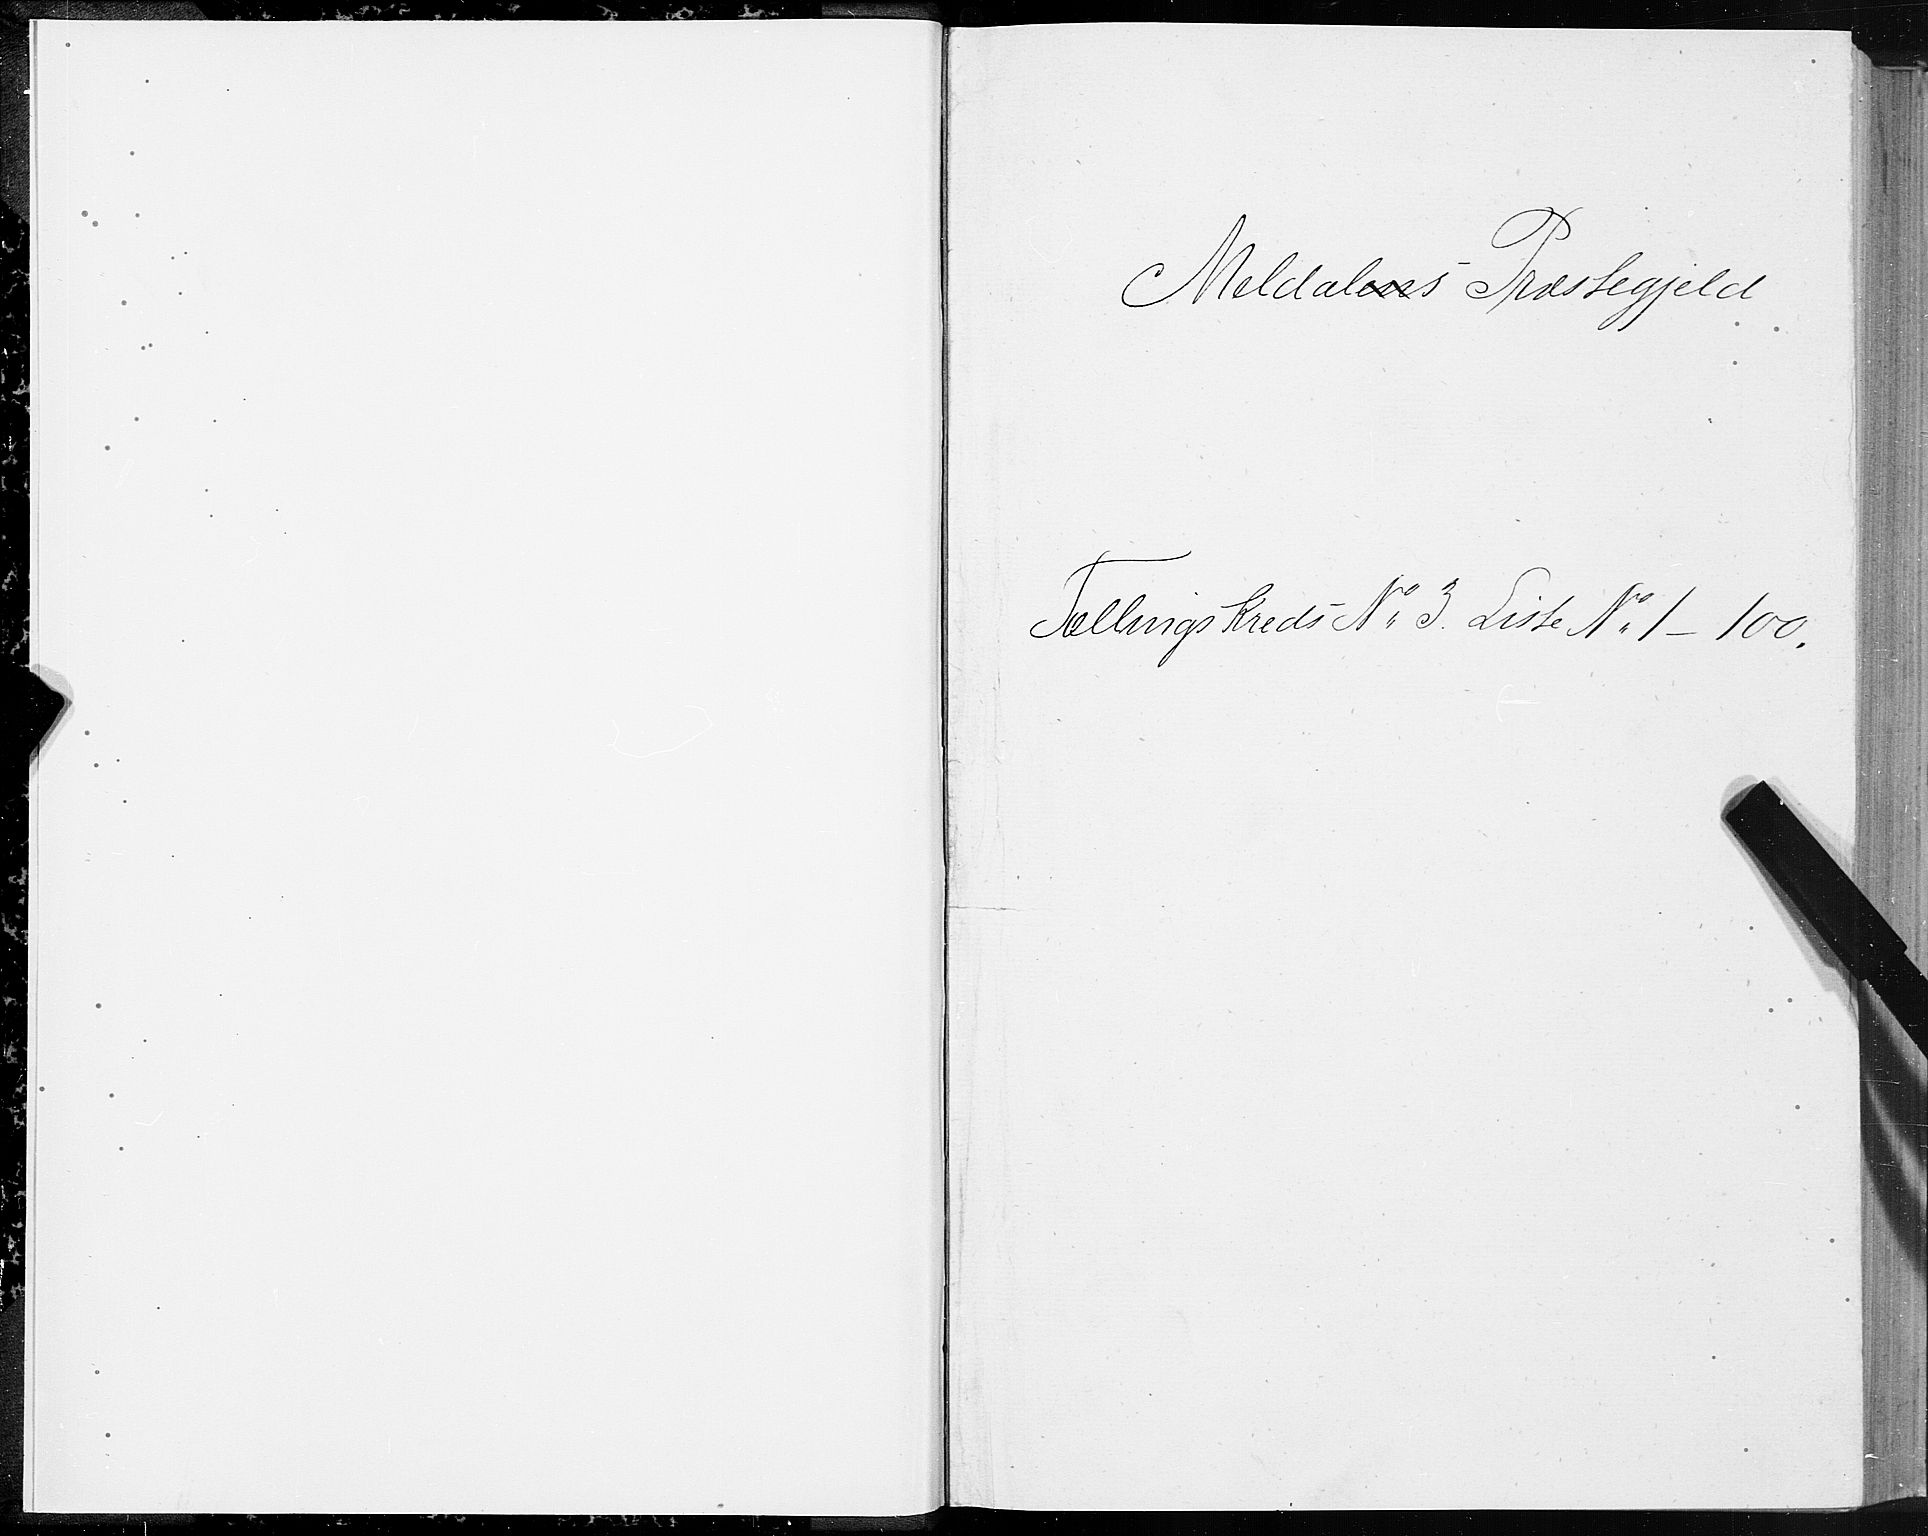 Meldalens Præstegjeld
Tællingskreds No 3. Liste No 1 – 100.